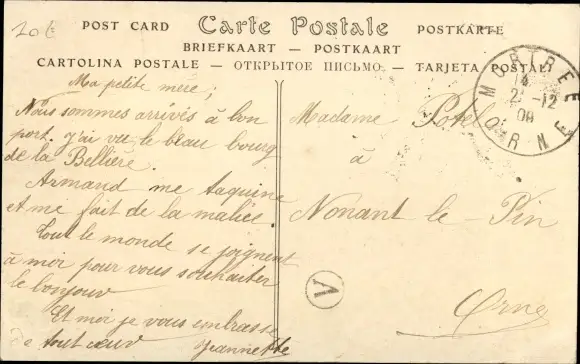 20€
POST CARD Carte Postale POSTKARTE
BRIEFKAART — POSTKAART
CARTOLINA POSTALE — ОТКРЫТОЕ ПИСЬМО — TARJETA POSTAL
Ma petite mère,
Nous sommes arrivés à bon
port. J'ai vu le beau bourg
de la Bellière.
Armand me taquine
et me fait de la malice.
Tout le monde se joignent
à moi pour vous souhaiter
le bonjour
Et moi je vous embrasse
de tout cœur Jeannette
Madame Potel
à
Nonant le - Pin
Orne
MORTRÉE
2 -12
09
ORNE
V